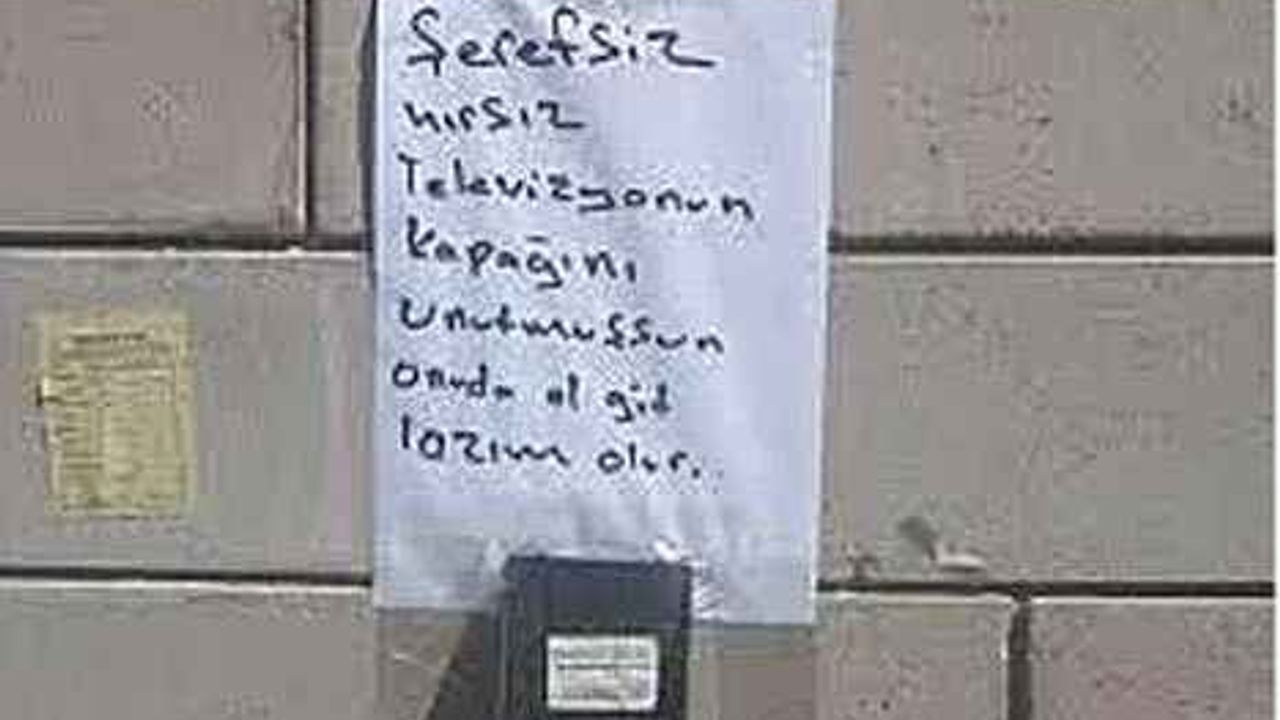 Şerefsiz
hırsız
Televizyonun
kapağını
Unutmuşsun
onuda al git
lazım olur.